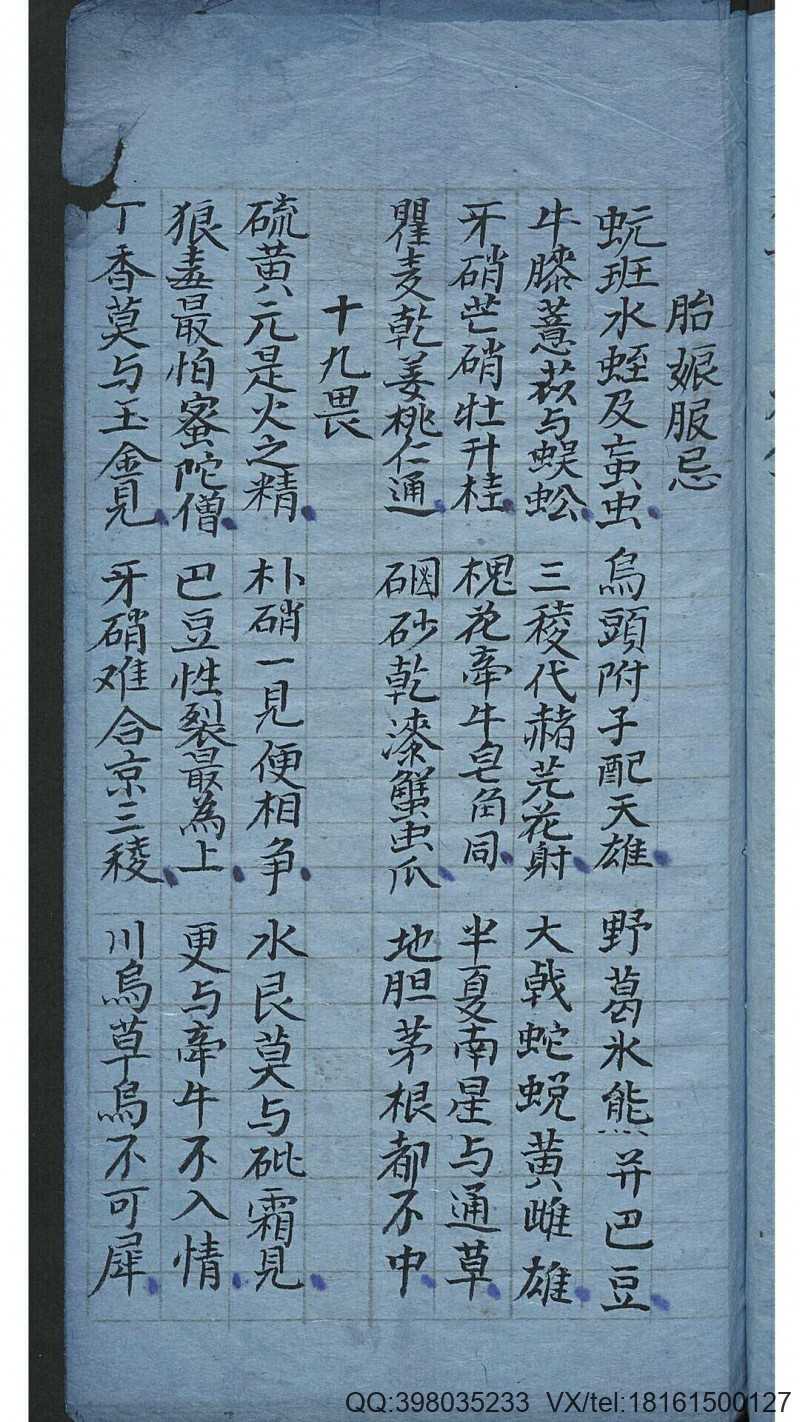 胎娠服忌
蚖班水蛭及䖟虫 烏頭附子配天雄 野葛氷熊并巴豆
牛膝薏苡与蜈蚣 三稜代赭芫花射 大戟蛇蜕黄雌雄
牙硝芒硝牡丹桂 槐花牽牛皂角同 半夏南星与通草
瞿麦乾姜桃仁通 硇砂乾漆蟹虫爪 地胆茅根都不中
十九畏
硫黄元是火之精 朴硝一見便相争 水艮莫与砒霜見
狼毒最怕蜜陀僧 巴豆性裂最為上 更与牽牛不入情
丁香莫与玉金見 牙硝难合京三稜 川烏草烏不可犀
QQ:398035233 VX/tel:18161500127